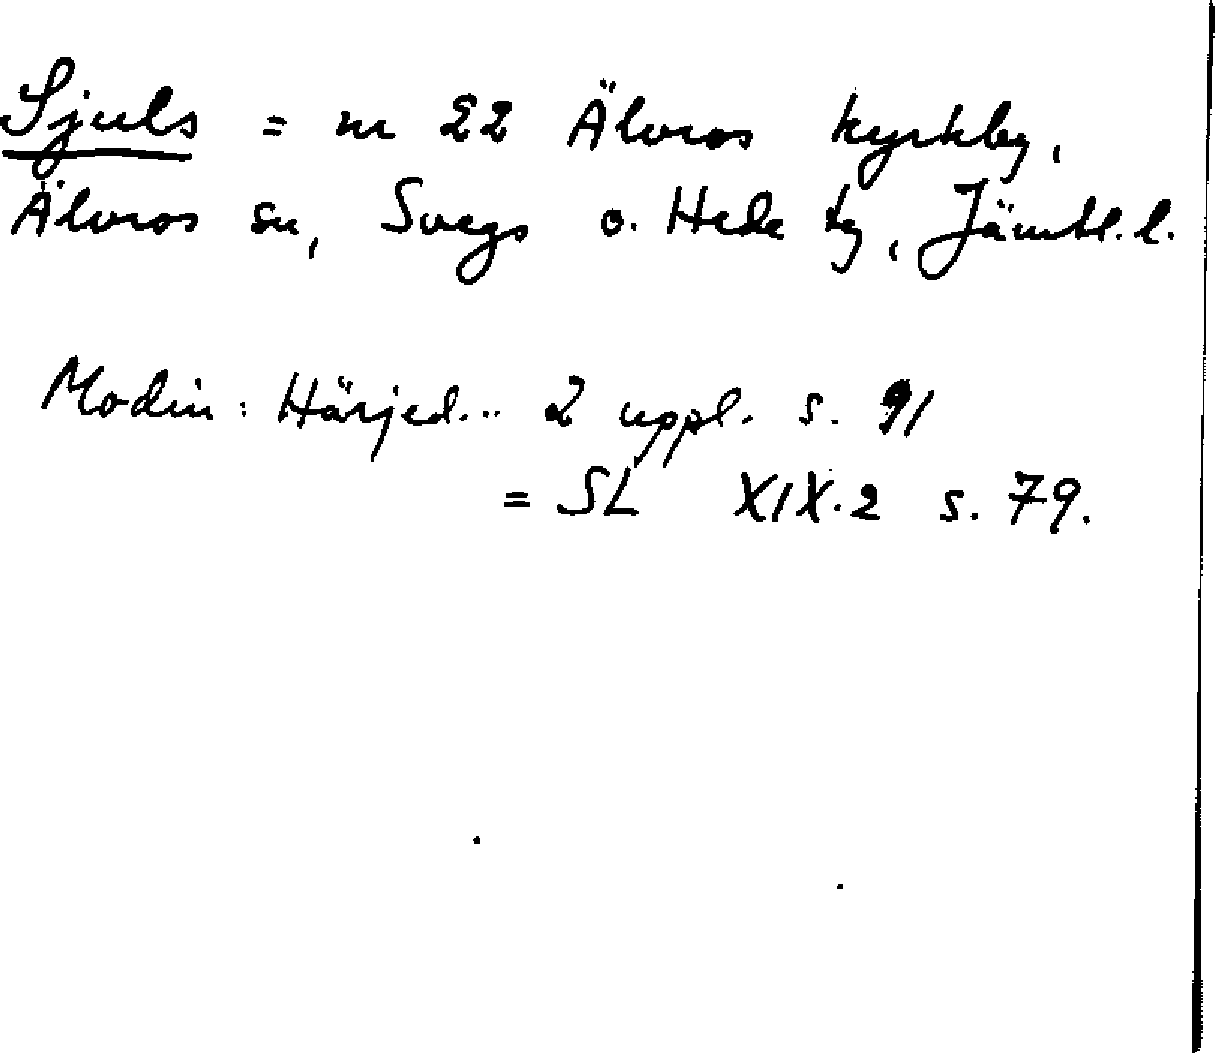 Sjuls = nr 22 Älvros kyrkby,
Älvros sn, Svegs o. Hede tg, Jämtl. l.
Modin: Härjed... 2 uppl. s. 91
= SL XIX.2 s. 79.